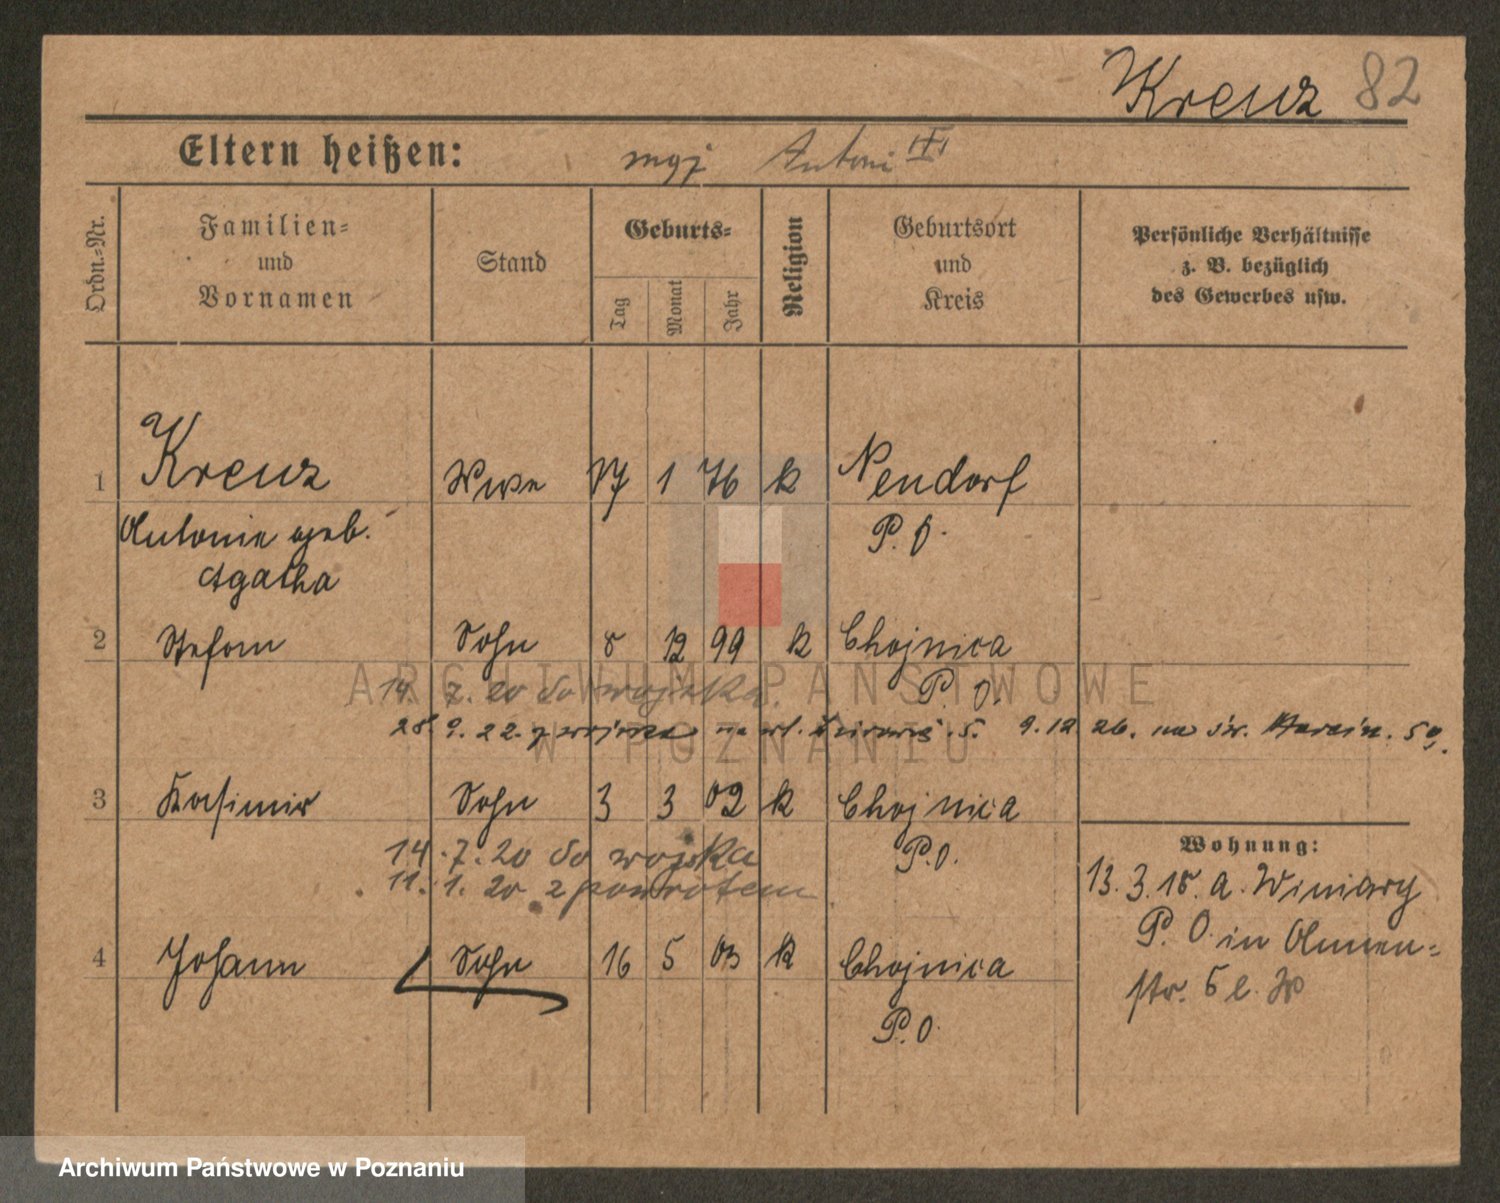 Krenz 82
Eltern heißen: mąż Antoni
Ordn.-Nr.
Familien-
und
Vornamen
Stand
Geburts-
Tag
Monat
Jahr
Religion
Geburtsort
und
Kreis
Persönliche Verhältnisse
z. B. bezüglich
des Gewerbes usw.
1 Krenz Wwe 17 1 76 k Neudorf
Antonie geb. P. O.
Agatha
2 Stefan Sohn 8 12 99 k Chojnica
14. 7. 20 do wojska. P. O.
28. 9. 22. z wojska na ul. 5. 9. 12 26. na św. Marcin. 59.
3 Kasimir Sohn 3 3 02 k Chojnica
14. 7. 20 do wojska P. O.
11. 1. 20 z powrotem
4 Johann Sohn 16 5 03 k Chojnica
P. O.
Wohnung:
13. 3. 18. a. Winiary
P. O. in Blumen-
str. 5 l. W
ARCHIWUM PAŃSTWOWE
W POZNANIU
Archiwum Państwowe w Poznaniu